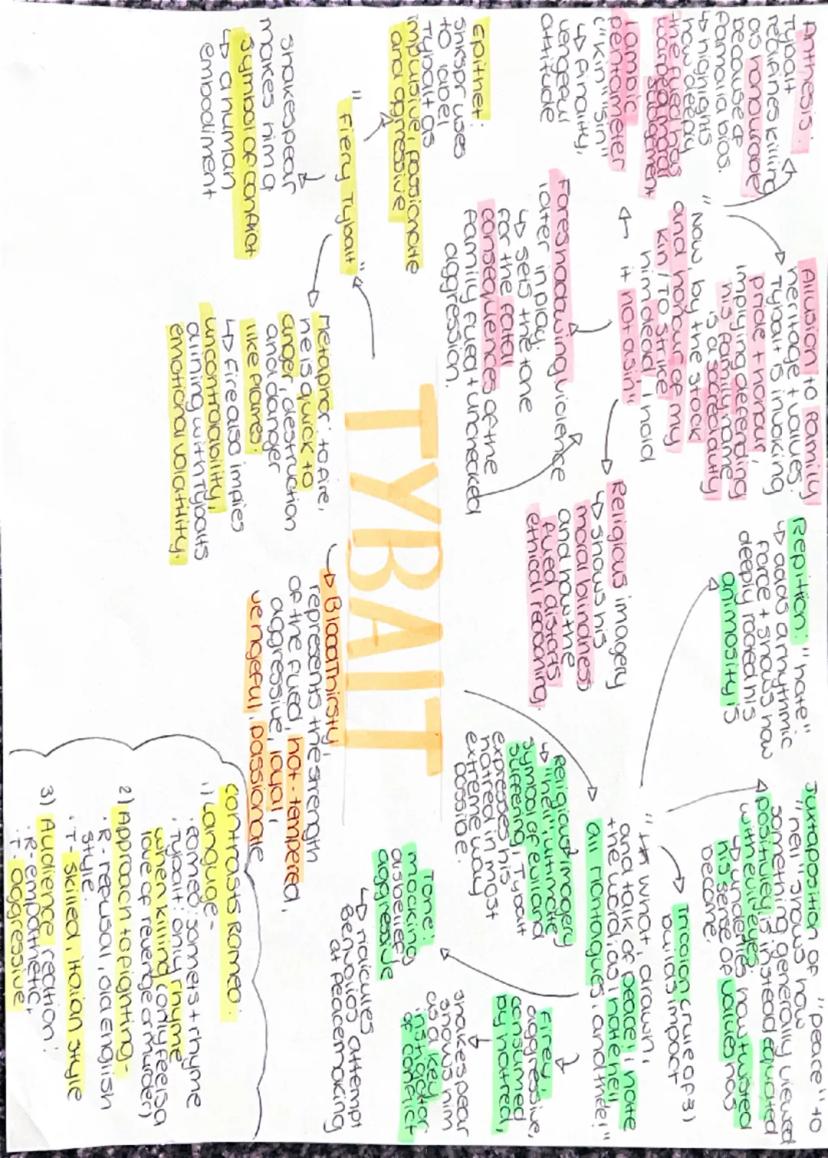 Anthesis:
Tybalt
redifines killing
as honourable
because of
familial bias.
↳ highlights
how deeply
the fued has
warped moral
judgement
Iambic
pentameter
("kin", "sin")
↳ finality,
vengeful
attitude
Allusion to family
heritage + values.
Tybalt is invoking
pride + honour,
implying defending
his family name
is a ... duty
"Now by the stock
and honour of my
kin / To strike
him dead I hold
it not a sin"
Foreshadowing violence
later in play.
↳ sets the tone
for the fatal
consequences of the
family fued + unchecked
aggression.
Religious imagery
↳ shows his
moral blindness
and how the
fued distorts
ethical reasoning
Epithet:
Shkspr uses
to label
Tybalt as
impulsive, passionate
and aggressive
"Fiery Tybalt"
Shakespear
makes him a
symbol of conflict
↳ a human
embodiment
Metaphor to fire,
he is quick to
anger, destruction
and danger
like flames.
↳ Fire also impies
uncontrolability,
alining with Tybalts
emotional volatility.
TYBALT
Bloodthirsty,
represents the strength
of the fued, hot-tempered,
aggressive, loyal,
vengeful, passionate
Repition: "hate"
↳ adds a rhythmic
force + shows how
deeply rooted his
animosity is
Juxtaposition of "peace" to
"hell" shows how
something generally viewed
positivley is instead equated
with evil eyes.
↳ underlies how twisted
his sense of values has
become.
"What, drawn,
and talk of peace! I hate
the word, as I hate hell
all Montagues, and thee!"
Tricolon (rule of 3)
builds impact
Religious imagery
↳ "hell", ultimate
symbol of evil and
suffering, Tybalt
expresses his
hatred in most
extreme way
possible.
Firey
aggressive,
consumed
by hatred,
Shakespear
shows him
as key
instigator
of conflict
Tone:
mocking
disbelief
aggressive
↳ ridicules
Benvolios attempt
at peacemaking
Contrasts Romeo:
1) Language -
· Romeo: sonnets + rhyme
· Tybalt: only rhyme
when killing (only feels a
love of revenge or murder)
2) Approach to fighting -
· R - refusal, old English
style.
· T - skilled, Italian style
3) Audience reation:
· R - empathetic +
· T - aggressive.